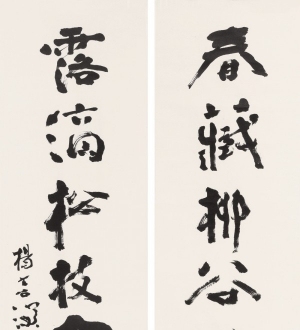 春藏柳谷
露滴松枝
楊善深